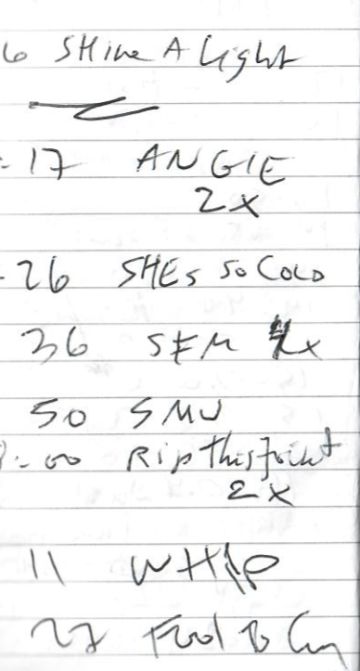 6 SHine A Light
:17 ANGIE
2x
-26 SHEs So COLD
36 SFM x
50 SMU
:00 Rip This Joint
2x
11 WHIP
27 Fool To Cry